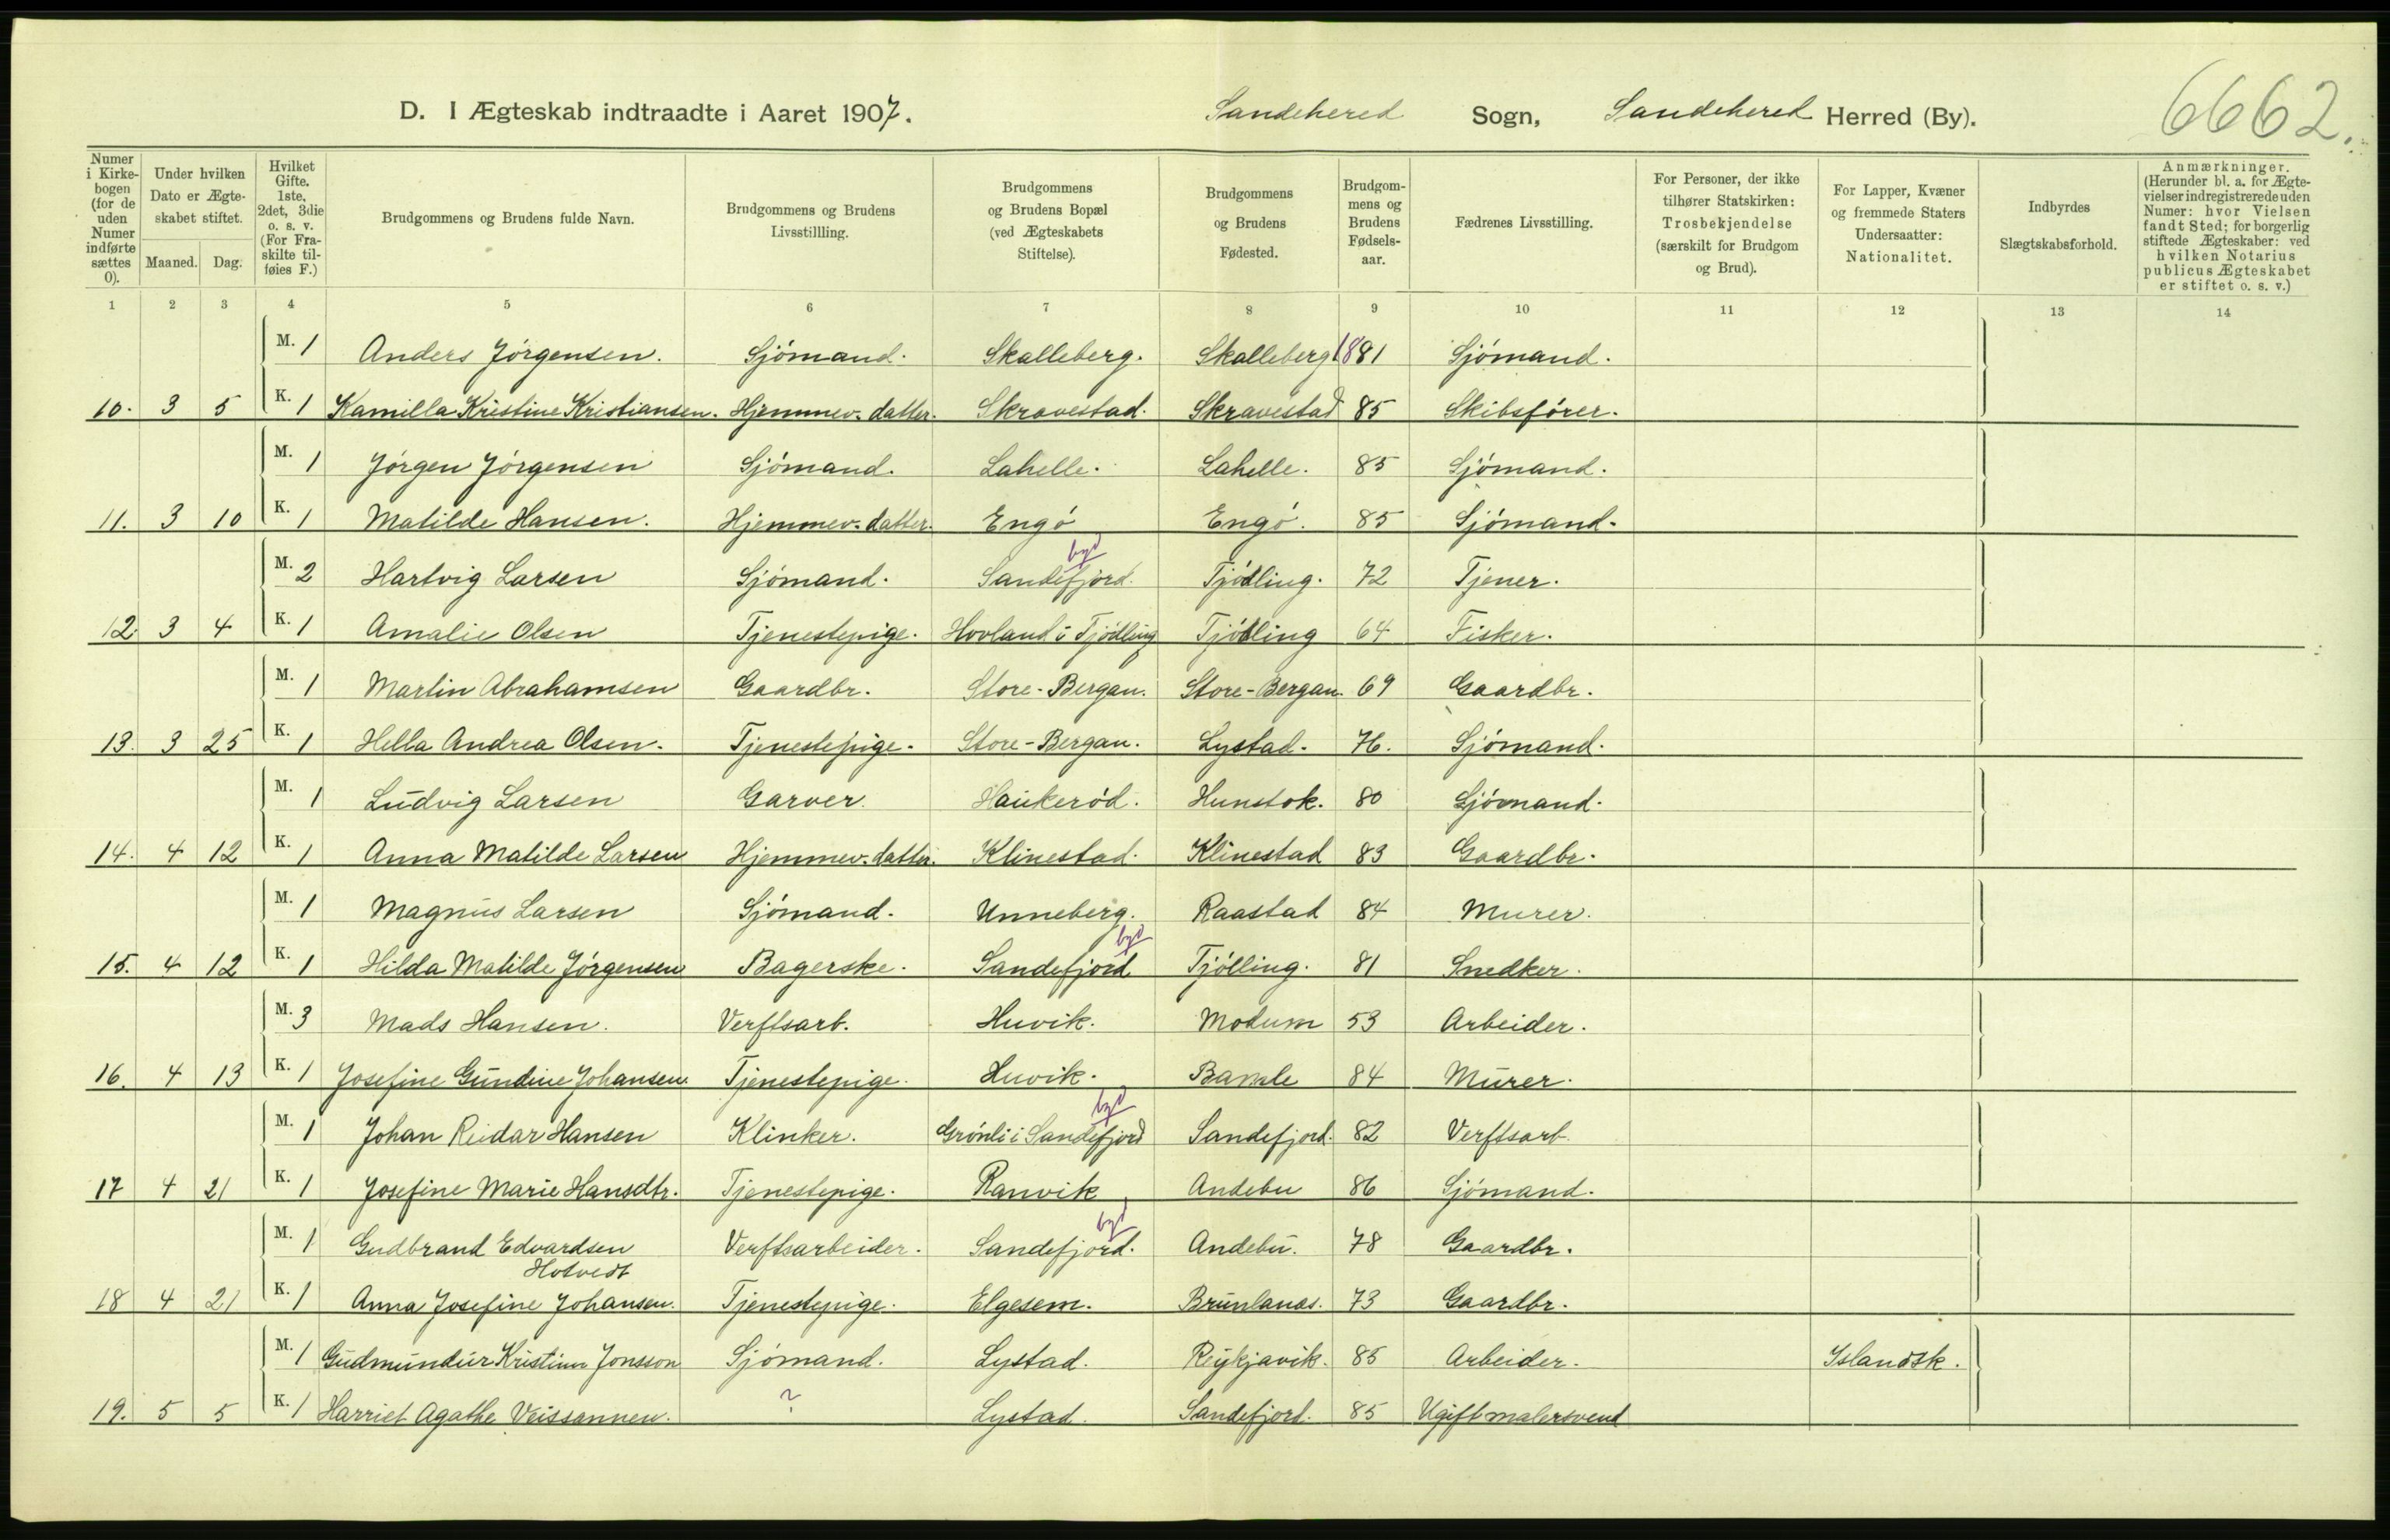 D. I Ægteskab indtraadte i Aaret 1907. Sandehered Sogn, Sandehered Herred (By). 6662.
Numer i Kirkebogen (for de uden Numer indførte sættes 0).
Under hvilken Dato er Ægteskabet stiftet.
Maaned. Dag.
Hvilket Gifte. 1ste, 2det, 3die o. s. v. (For Fraskilte tilføies F.)
Brudgommens og Brudens fulde Navn.
Brudgommens og Brudens Livsstillling.
Brudgommens og Brudens Bopæl (ved Ægteskabets Stiftelse).
Brudgommens og Brudens Fødested.
Brudgommens og Brudens Fødselsaar.
Fædrenes Livsstilling.
For Personer, der ikke tilhører Statskirken: Trosbekjendelse (særskilt for Brudgom og Brud).
For Lapper, Kvæner og fremmede Staters Undersaatter: Nationalitet.
Indbyrdes Slægtskabsforhold.
Anmærkninger. (Herunder bl. a. for Ægtevielser indregistrerede uden Numer: hvor Vielsen fandt Sted; for borgerlig stiftede Ægteskaber: ved hvilken Notarius publicus Ægteskabet er stiftet o. s. v.)
1 2 3 4 5 6 7 8 9 10 11 12 13 14
M. 1 Anders Jörgensen. Sjömand. Skalleberg. Skalleberg 1881 Sjömand.
10. 3 5 K. 1 Kamilla Kristine Kristiansen. Hjemmev. datter. Skravestad. Skravestad 85 Skibsförer.
M. 1 Jörgen Jörgensen Sjömand. Lahelle. Lahelle. 85 Sjömand.
11. 3 10 K. 1 Matilde Hansen. Hjemmev. datter. Engö Engö. 85 Sjömand.
byd
M. 2 Hartvig Larsen Sjömand. Sandefjord. Tjödling. 72 Tjener.
12. 3 4 K. 1 Amalie Olsen Tjenestepige. Hovland i Tjödling Tjödling 64 Fisker.
M. 1 Martin Abrahamsen Gaardbr. Store-Bergan. Store-Bergan. 69 Gaardbr.
13. 3 25 K. 1 Hella Andrea Olsen. Tjenestepige. Store-Bergan. Lystad. 76. Sjömand.
M. 1 Ludvig Larsen Garver. Haukeröd. Hunstok. 80 Sjömand.
14. 4 12 K. 1 Anna Matilde Larsen Hjemmev. datter. Klinestad. Klinestad 83 Gaardbr.
M. 1 Magnus Larsen Sjömand. Unneberg. Raastad 84 Murer.
byd
15. 4 12 K. 1 Hilda Matilde Jörgensen Bagerske. Sandefjord Tjölling. 81 Snedker.
M. 3 Mads Hansen. Verftsarb. Huvik. Modum 53 Arbeider.
16. 4 13 K. 1 Josefine Gundine Johansen. Tjenestepige. Huvik. Bamle 84 Murer.
byd
M. 1 Johan Reidar Hansen Klinker. Grönli i Sandefjord Sandefjord. 82 Verftsarb.
17 4 21 K. 1 Josefine Marie Hansdtr. Tjenestepige. Ranvik Andebu 86 Sjömand.
byd
M. 1 Gudbrand Edvardsen Verftsarbeider. Sandefjord. Andebu. 78 Gaardbr.
Hotvedt
18 4 21 K. 1 Anna Josefine Johansen. Tjenestepige. Elgesem. Brunlanæs. 73 Gaardbr.
M. 1 Gudmundur Kristinn Jonsson Sjömand. Lystad. Reykjavik. 85 Arbeider. Islandsk.
19. 5 5 K. 1 Harriet Agathe Veissannen. ? Lystad. Sandefjord. 85 Ugift malersvend